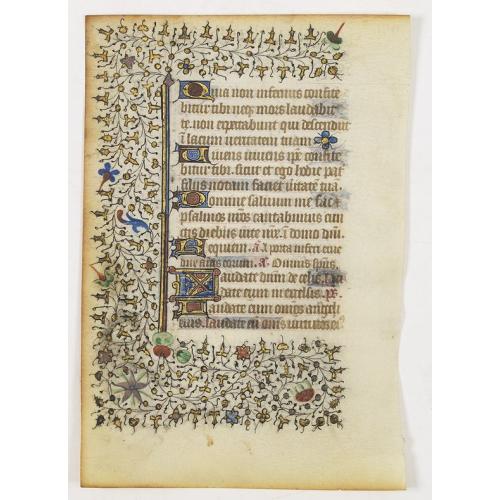 Quia non infernus confite
bitur tibi neq; mors laudabit
te. non expectabunt qui descendūt
ī lacum veritatem tuam
Vivens vivens ip̄e confite
bitur tibi. sicut et ego hodie pat̄
filiis notam faciet v̄itatē tuā.
Domine salvum me fac
psalmos n̄ros cantabimus cun
ctis diebus vite n̄re. ī domo dn̄i.
Requiem. ā. A porta inferi erue
dn̄e aīas eorum. ā. Omnis sp̄us.
Laudate dn̄m de celis
date eum in excelsis. ps̄.
Laudate eum om̄s angeli
eius. laudate eū om̄s virtutes ei